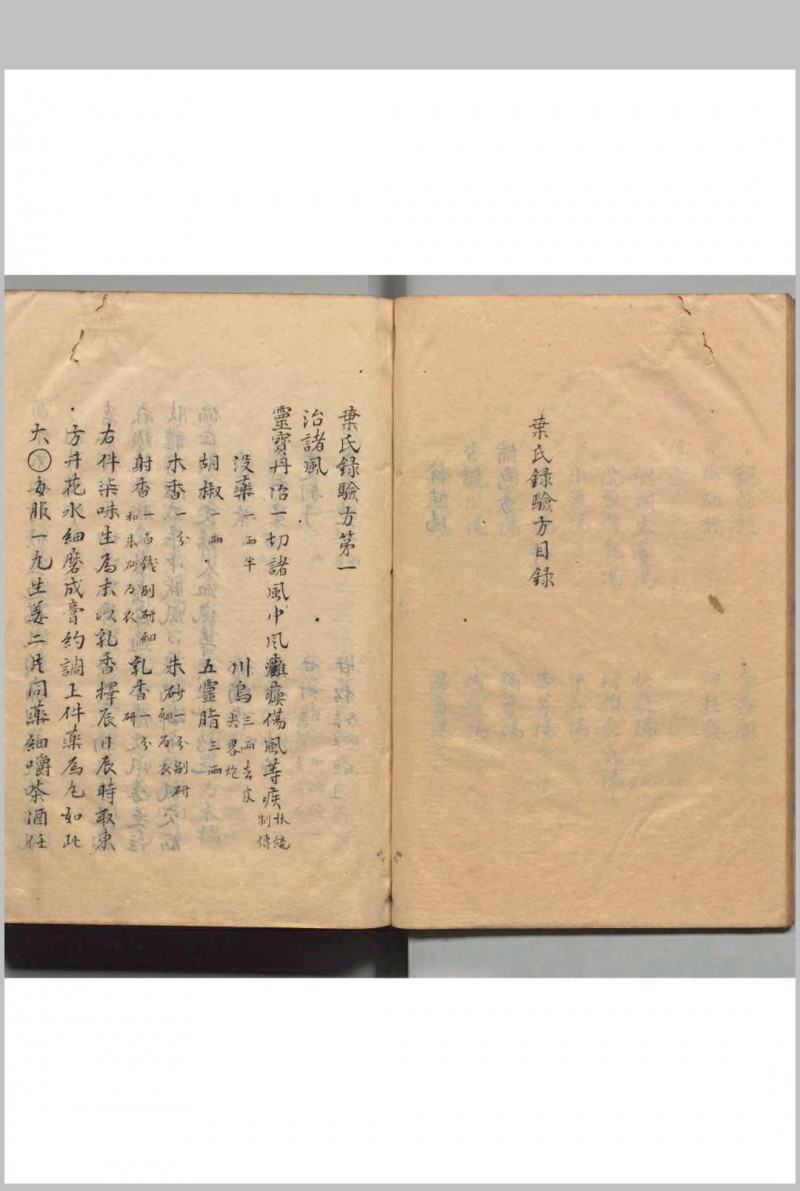 葉氏錄驗方目錄
葉氏錄驗方第一
治諸風
靈寶丹治一切諸風中風癱瘓傷風等疾林統制傳
没藥一兩半 川烏三兩去皮尖畧炮
胡椒一兩 五靈脂三兩
木香一分 朱砂一分别研細为衣
射香一百錢别研細和朱砂为衣 乳香一分研
右件柒味生爲末以乳香擇辰日辰時取東
方井花水細磨成膏約調上件藥爲丸如此
大〇每服一丸生姜二片同藥細嚼茶酒任